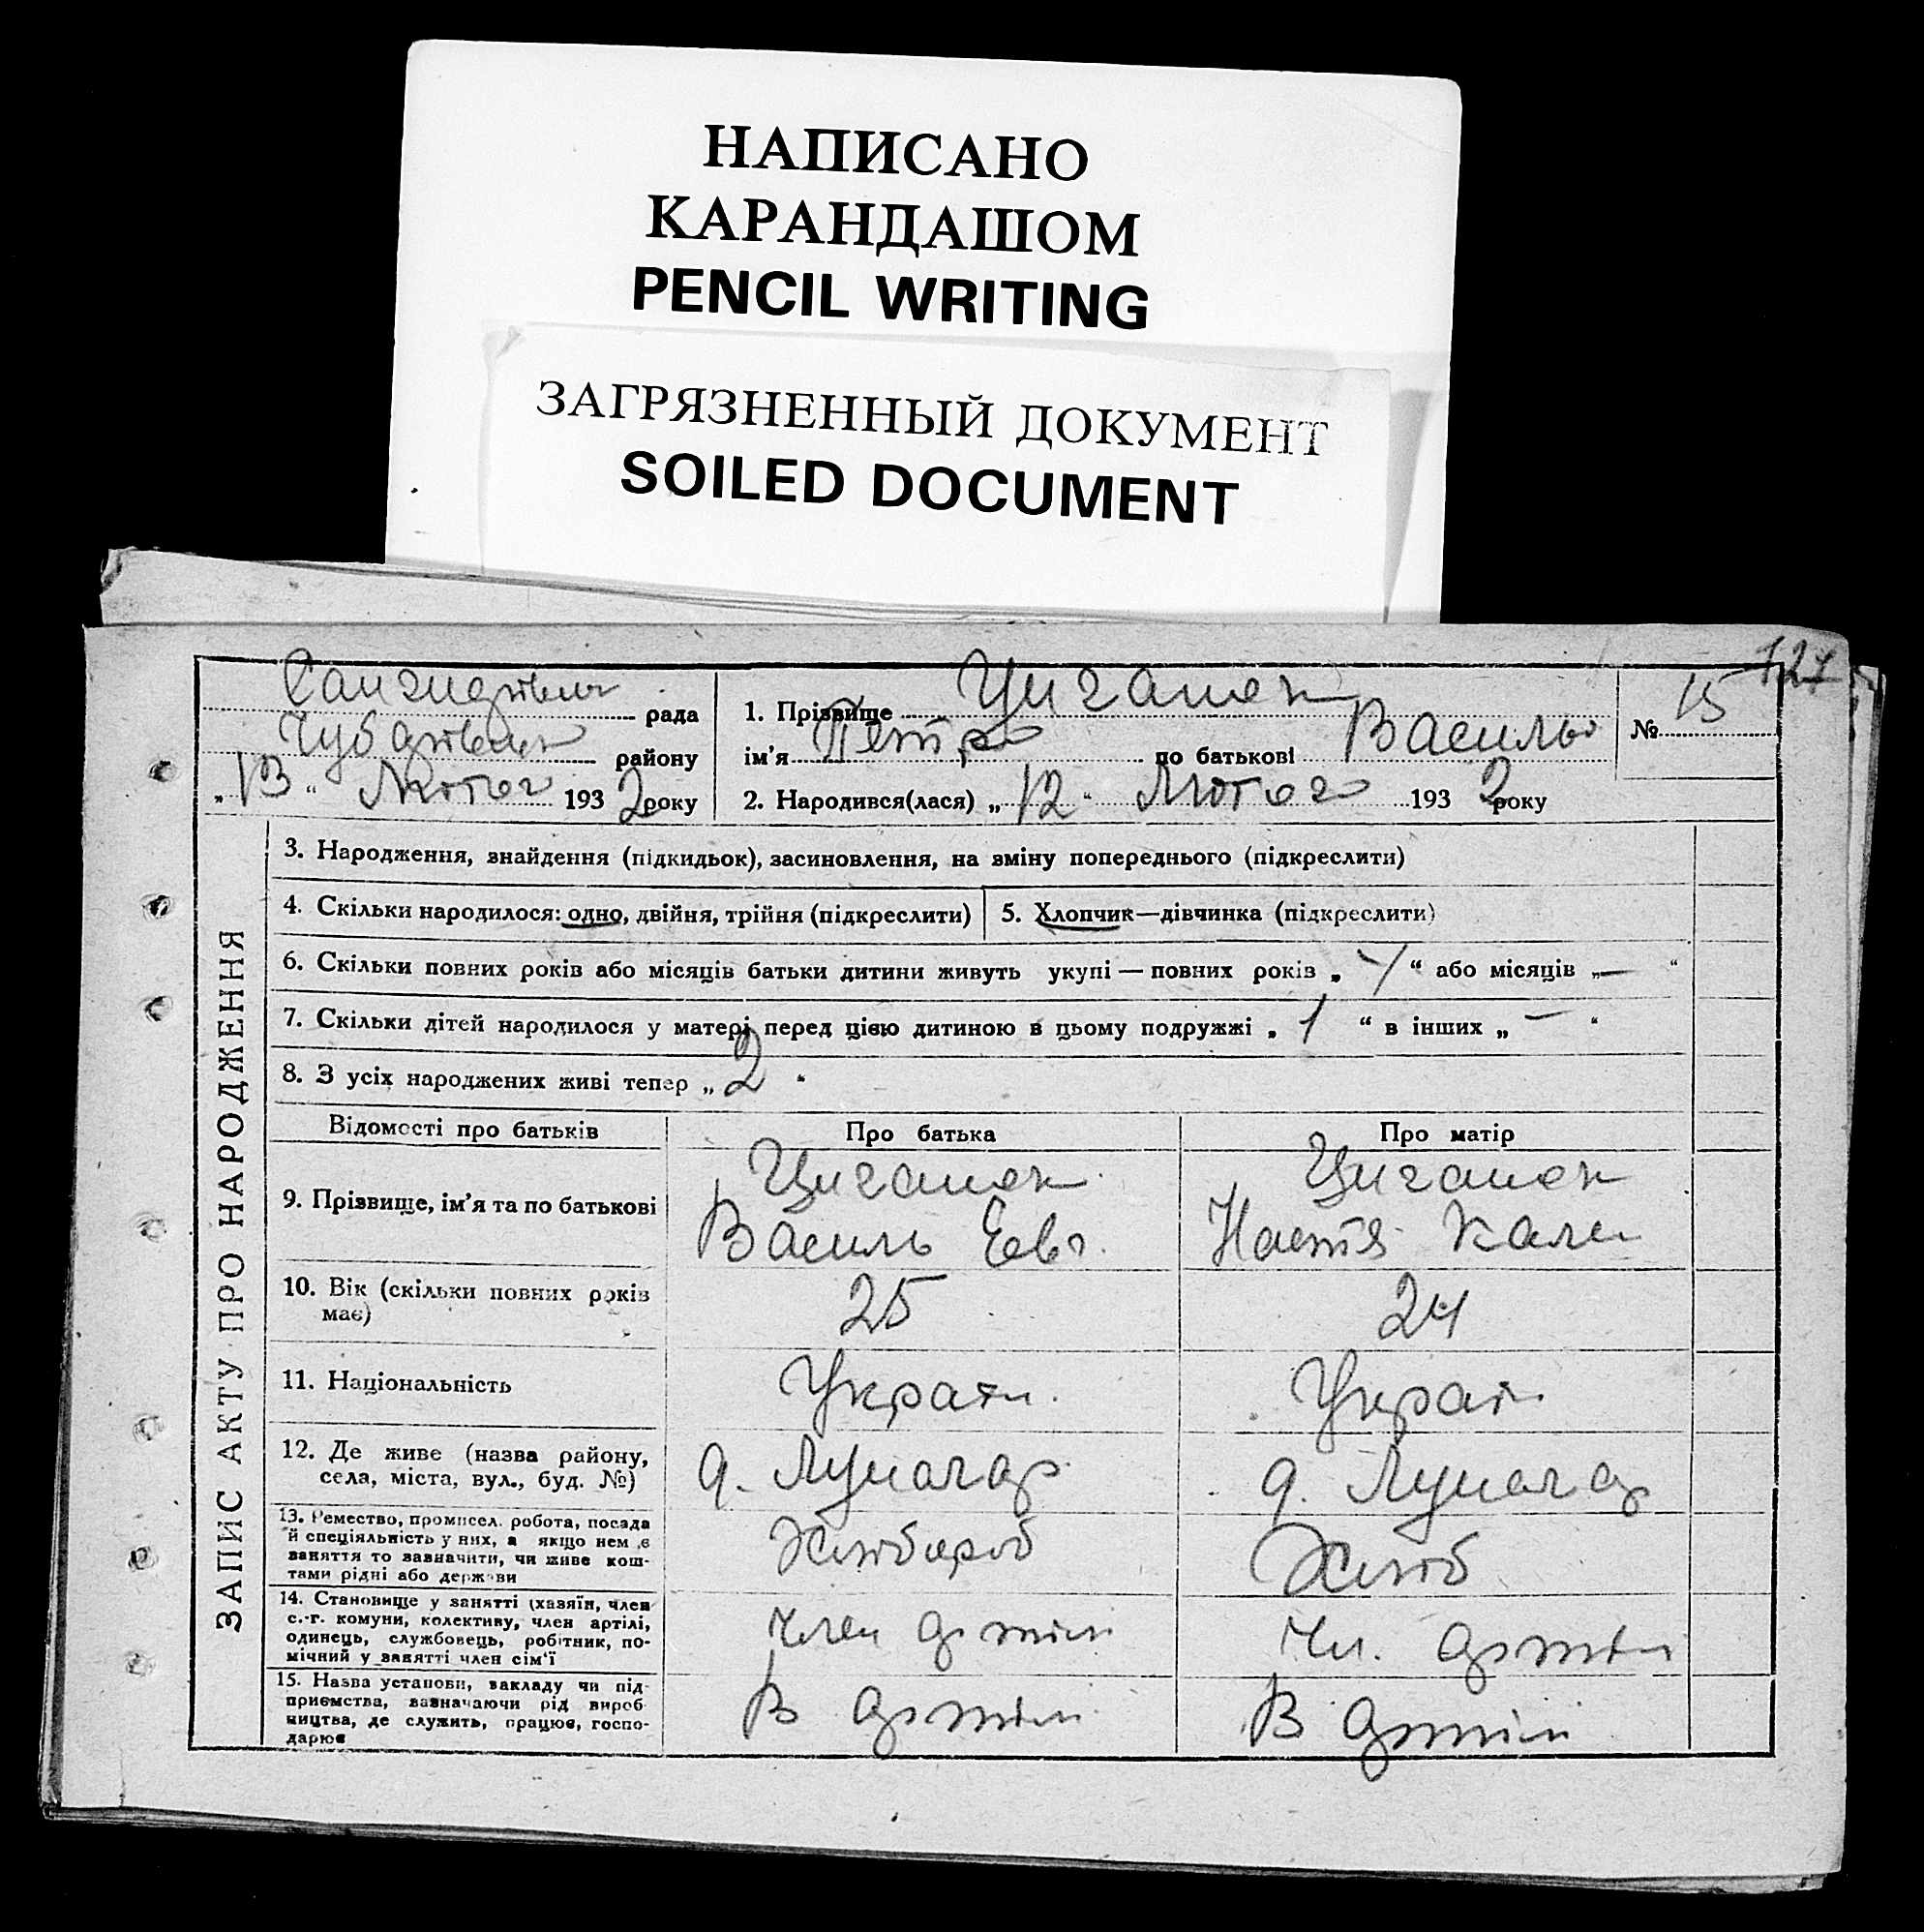 НАПИСАНО
КАРАНДАШОМ
PENCIL WRITING
ЗАГРЯЗНЕННЫЙ ДОКУМЕНТ
SOILED DOCUMENT
127
рада
району
„13“ Лютого 1932 року
1. Прізвище Циганок
ім'я Петро по батькові Василь
2. Народився(лася) „12“ Лютого 1932 року
№ 15
ЗАПИС АКТУ ПРО НАРОДЖЕННЯ
3. Народження, знайдення (підкидьок), засиновлення, на зміну попереднього (підкреслити)
4. Скільки народилося: одно, двійня, трійня (підкреслити)
5. Хлопчик—дівчинка (підкреслити)
6. Скільки повних років або місяців батьки дитини живуть укупі — повних років „ “ або місяців „—“
7. Скільки дітей народилося у матері перед цією дитиною в цьому подружжі „1“ в інших „—“
8. З усіх народжених живі тепер „2“
Відомості про батьків
Про батька
Про матір
9. Прізвище, ім'я та по батькові
Циганок
Василь
Циганок
Настя Кален
10. Вік (скільки повних років
має)
25
24
11. Національність
Україн.
Україн
12. Де живе (назва району,
села, міста, вул., буд. №)
13. Ремество, промисел, робота, посада
й спеціяльність у них, а якщо нем є
заняття то зазначити, чи живе кош-
тами рідні або держави
Хлібороб
Хліб
14. Становище у занятті (хазяїн, член
с.-г. комуни, колективу, член артілі,
одинець, службовець, робітник, по-
мічний у занятті член сім'ї
Член артіли
Чл. артіли
15. Назва установи, закладу чи під-
приємства, зазначаючи рід вироб-
ництва, де служить, працює, госпо-
дарює
В артіли
В артіли